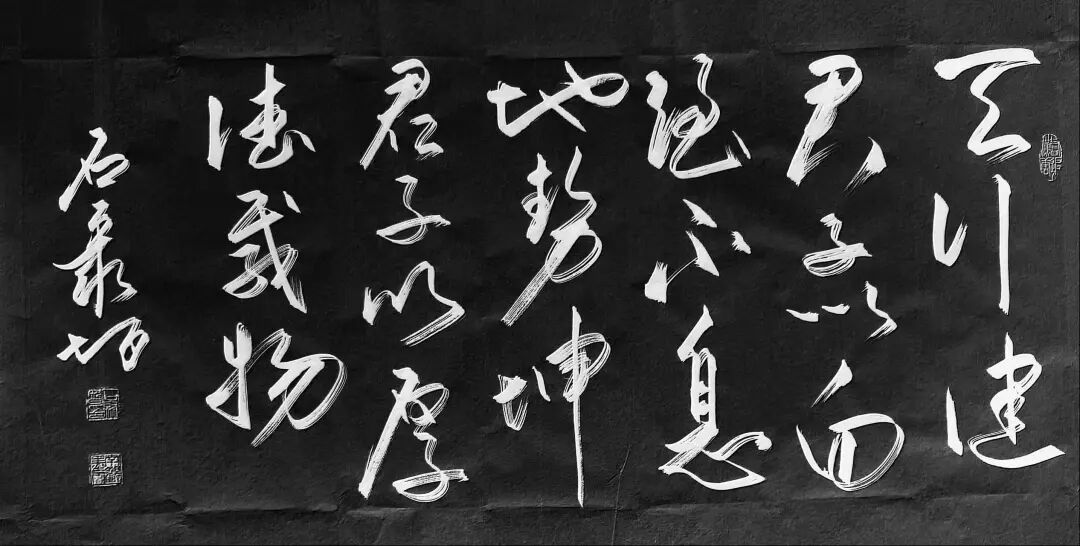 天行健
君子以自
强不息
地势坤
君子以厚
德载物
石